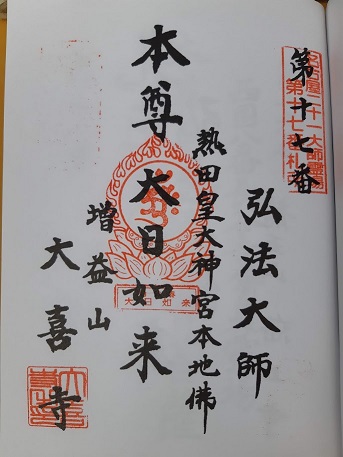 第十七番
名古屋二十一大師霊
第十七番札所
弘法大師
熱田皇大神宮本地佛
本尊大日如来
大日如来
増益山
大喜寺